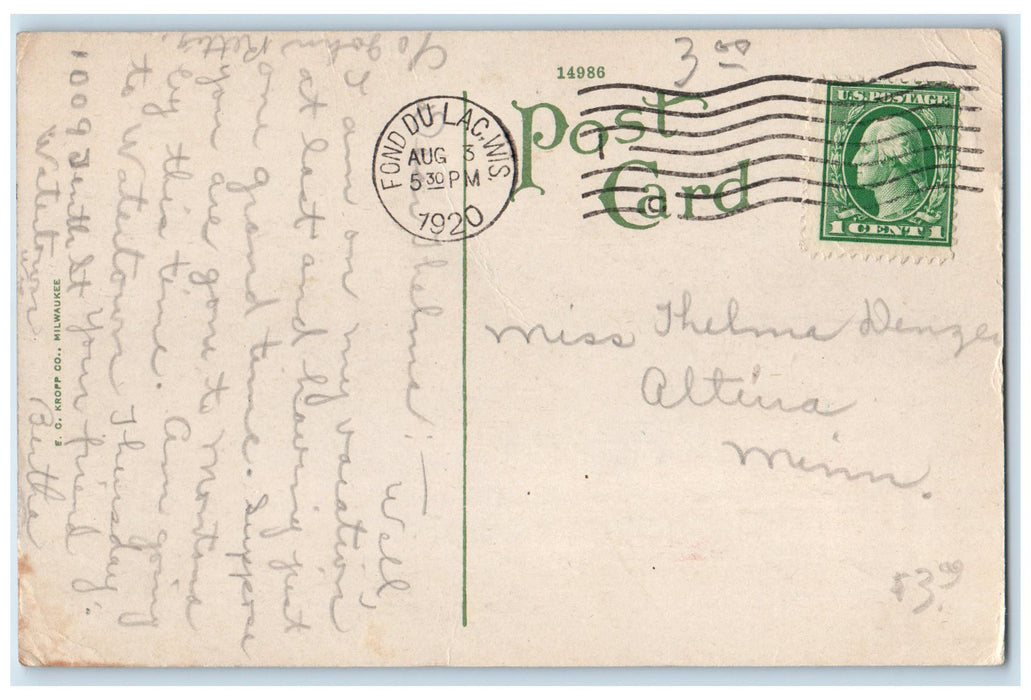 14986
3 00
Post
Card
FOND DU LAC, WIS.
AUG 3
5 30 PM
1920
U.S. POSTAGE
1 CENT 1
Miss Thelma Denzer
Altura
Minn.
$3.00
Thelma: — Well,
I am on my vacation
at last and having just
one grand time. Suppose
you are gone to Montana
by this time. Am going
to Watertown Thursday.
1009 Tenth St Your friend
Watertown Bertha
Wis.
John
E. C. KROPP CO., MILWAUKEE